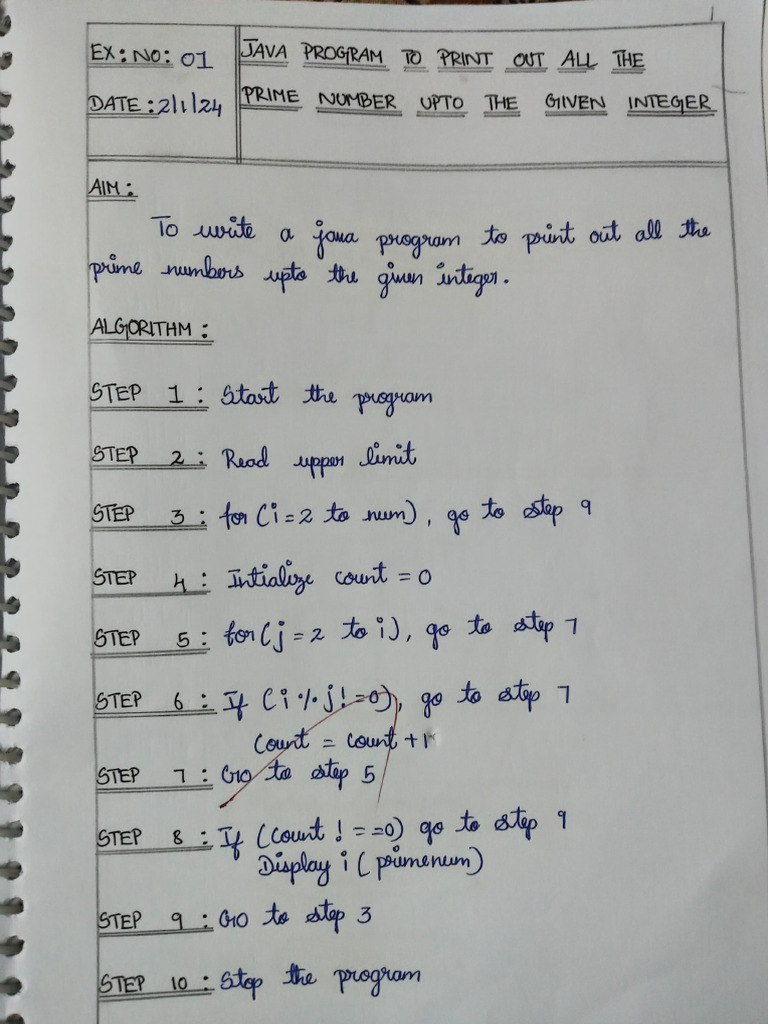 EX: NO: 01
JAVA PROGRAM TO PRINT OUT ALL THE
DATE: 2/1/24
PRIME NUMBER UPTO THE GIVEN INTEGER
AIM:
To write a java program to print out all the
prime numbers upto the given integer.
ALGORITHM:
STEP 1: Start the program
STEP 2: Read upper limit
STEP 3: for (i=2 to num), go to step 9
STEP 4: Intialize count = 0
STEP 5: for (j=2 to i), go to step 7
STEP 6: If (i % j! =0), go to step 7
Count = count +1
STEP 7: Go to step 5
STEP 8: If (count ! ==0) go to step 9
Display i (primenum)
STEP 9: Go to step 3
STEP 10: Stop the program